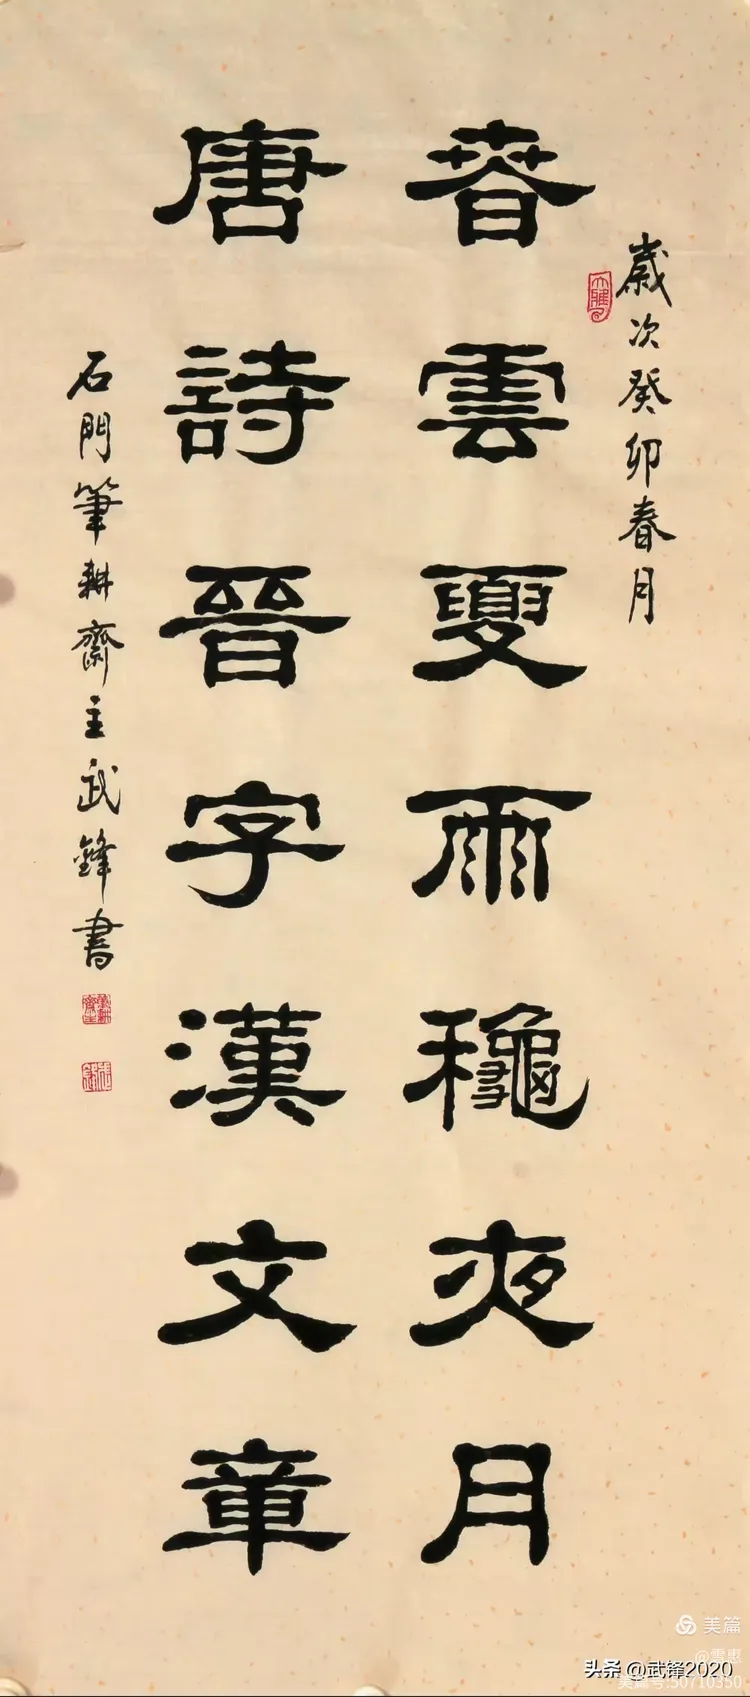 歲次癸卯春月
春雲夏雨龝夜月
唐詩晉字漢文章
石門筆耕齋主武鋒書
美篇
@雪惠
头条 @武锋2020
美篇号:50710350